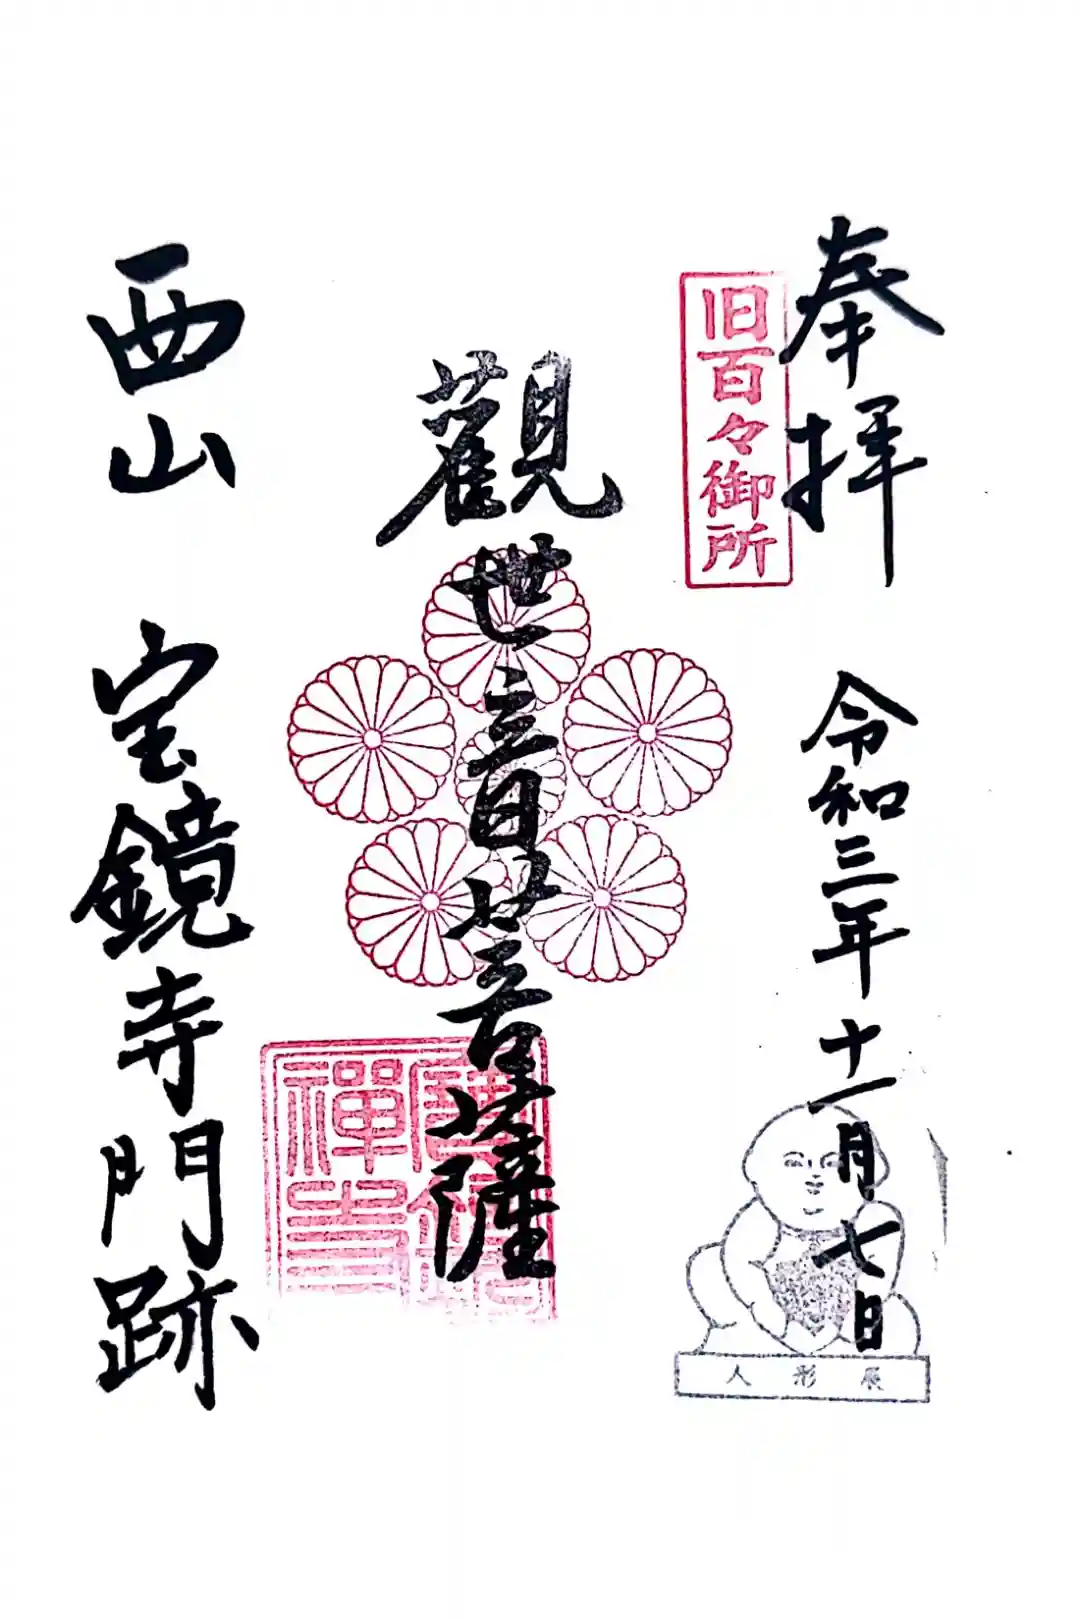 奉拝
旧百々御所
令和三年十一月七日
人形展
觀世音菩薩
禅寺
西山 宝鏡寺門跡